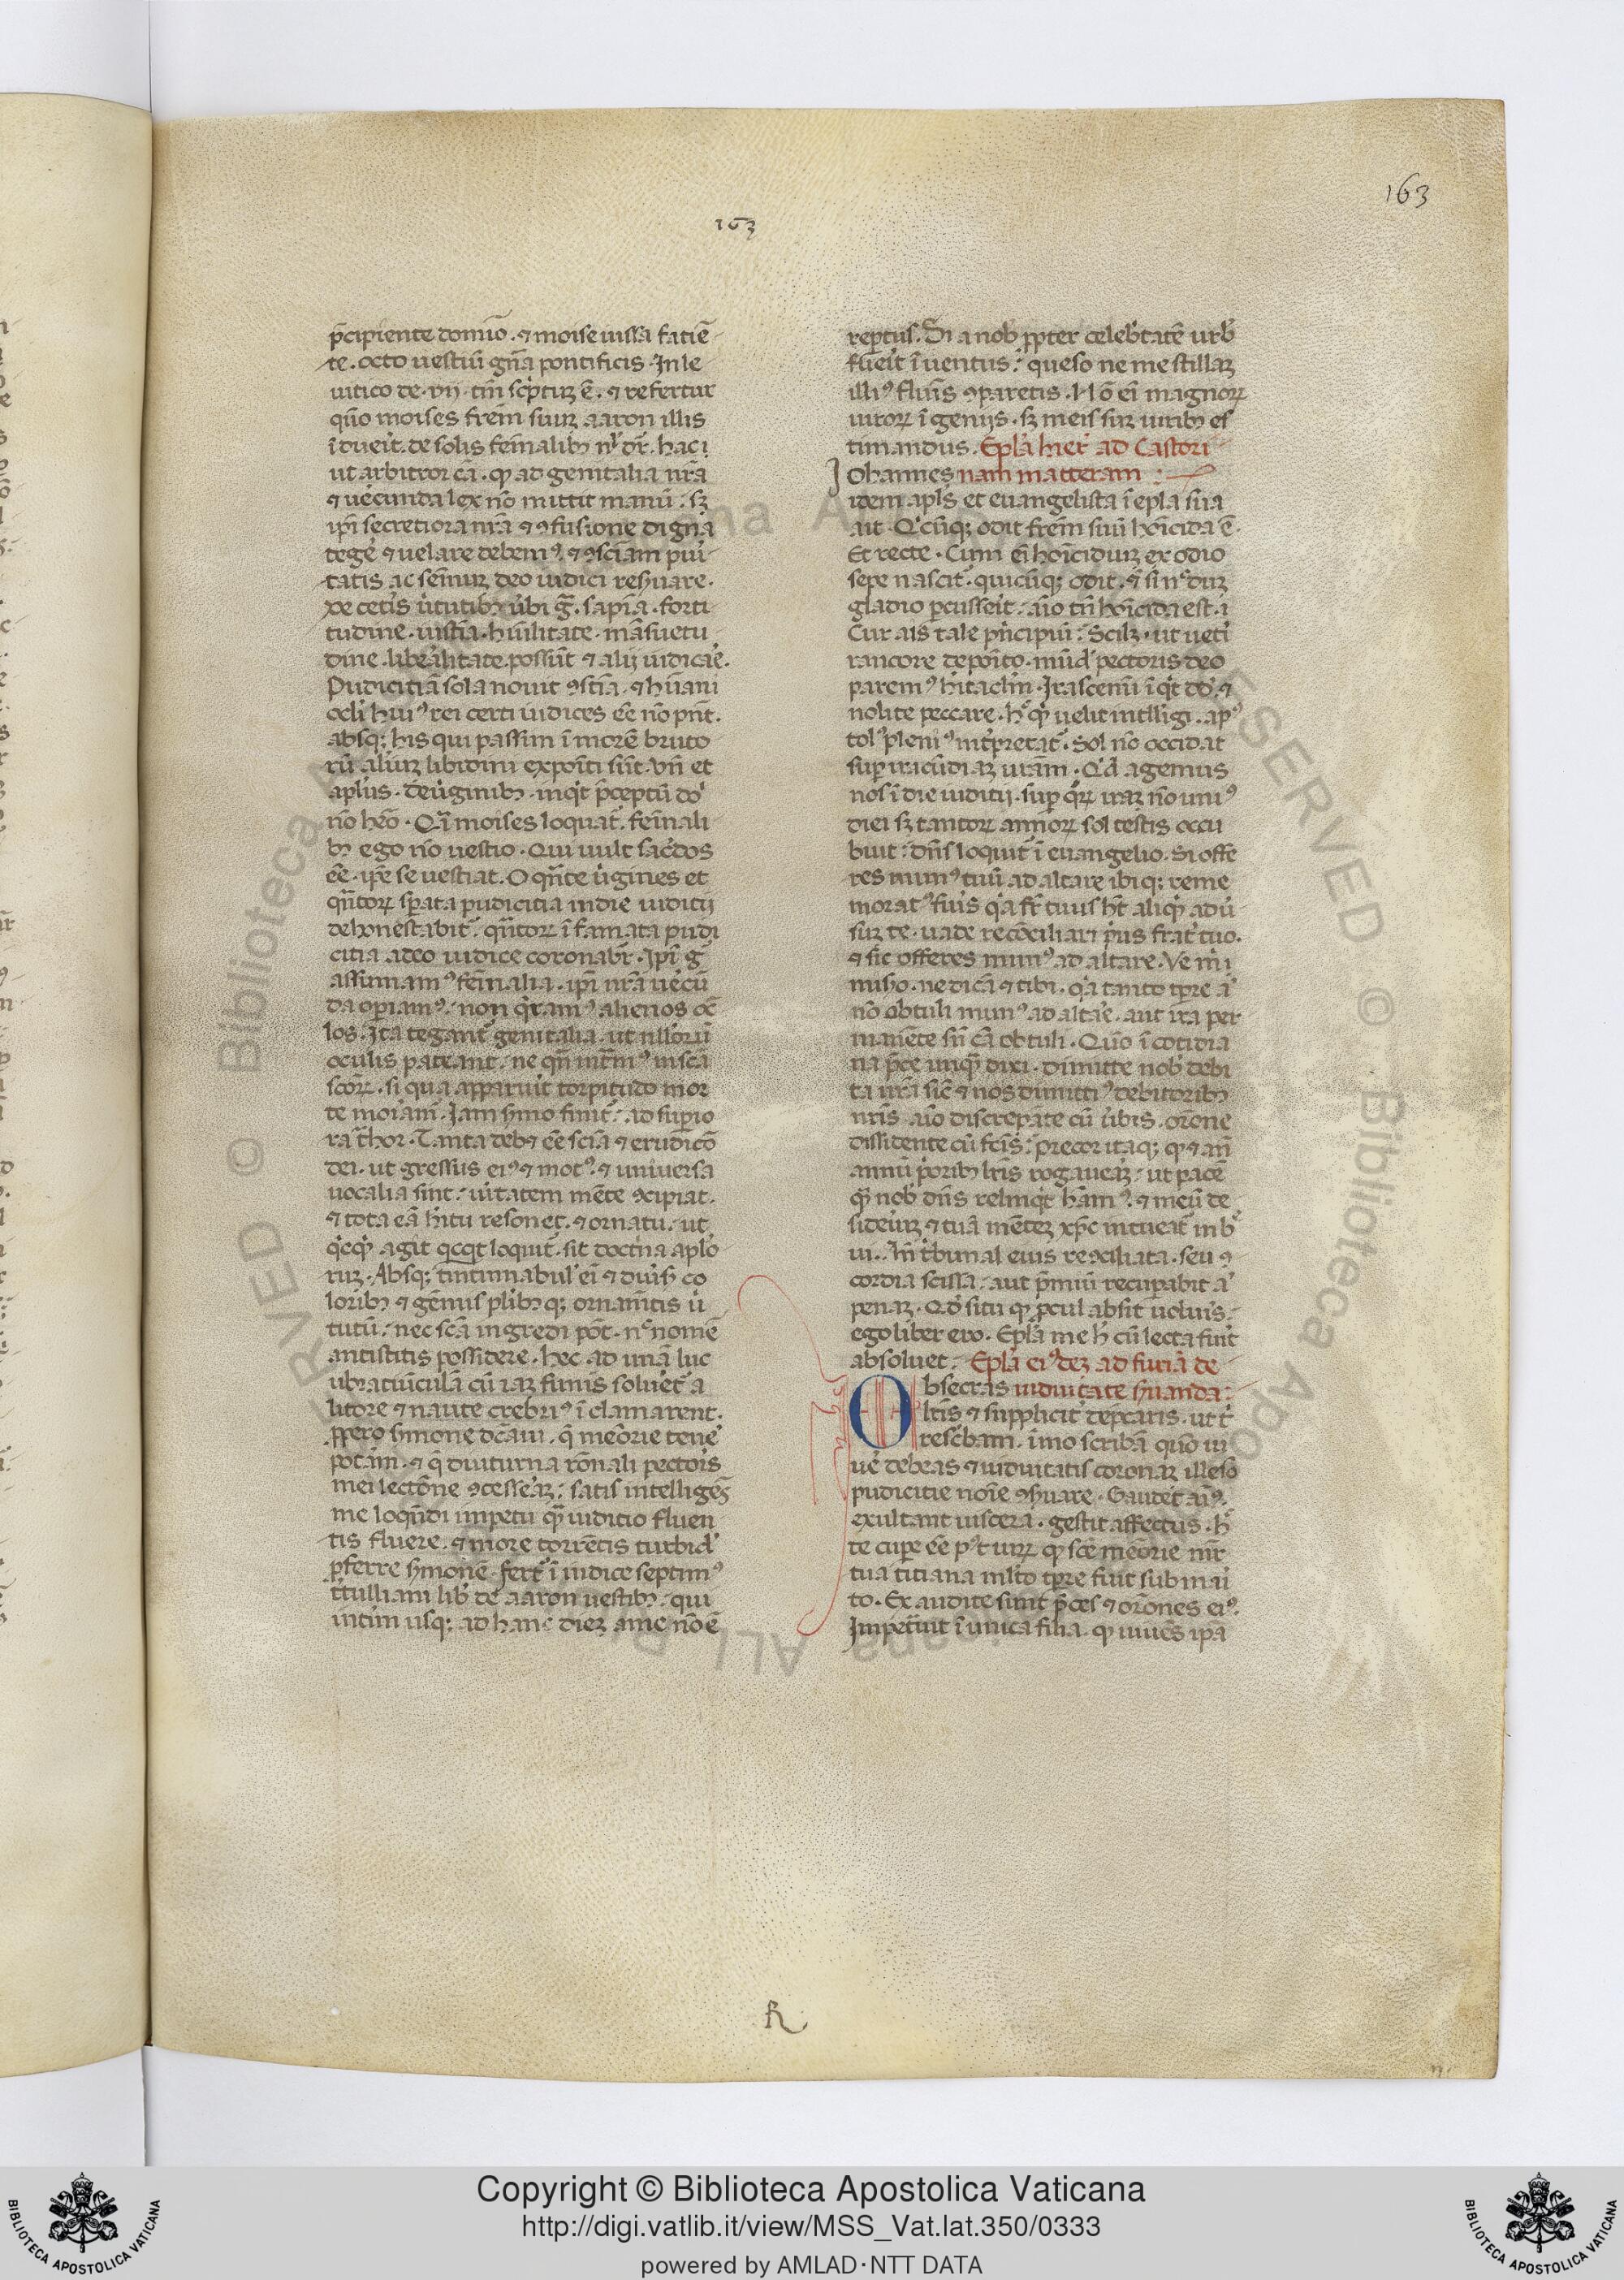 163
163
p̄cipiente domino. ⁊ moise iussa faciē
te. octo uestiū gn̄a pontificis. In le
uitico de. vij. tm̄ sc̄ptuꝫ ē. ⁊ refertur
quō moises frēm suuꝫ aaron illis
īdueīt. de solis fēinalibꝫ nl̓ dr̄. hac i
ut arbitror cā. ꝙ ad genitalia nr̄a
⁊ uecunda lex nō mittit manū. sꝫ
ip̄i secretiora nr̄a ⁊ ꝯfusione digna
tegē ⁊ uelare debemꝰ. ⁊ ꝯsciam puri
tatis
deo iudici reẜuare.
ꝉe cetīs uirtutibꝫ ubi gr̄. sapīa. forti
tudine. iustīa. hūilitate. māsuetu
dine. libealitate. possūt ⁊ alij iudicāe.
Pudicitiā sola nouit ꝯsc̄ia. ⁊ hūani
ocl̓i huiꝰ rei certi iudices eē nō pn̄t.
absqꝫ his qui passim ī morē bruto
rū aīliuꝫ libidini expoīti sūt. Vn̄ et
apl̓us. de uiginibꝫ. inqt p̄ceptū do̓
nō heō. Qi moises loquat̄. fēinali
bꝫ ego nō uestio. Qui uult sac̓dos
eē. ip̄e se uestiat. O qn̄te uīgines et
qn̄toꝝ sp̄ata pudicitia in die iuditij
dehonestabit̄. qn̄toꝝ īfamata pudi
citia a deo iudice coronabr̄. Ip̄i gͦ
assumamꝰ fēinalia. ip̄i nr̄a uecū
da opiamꝰ. non q̄ramꝰ alienos oc̄
los. Ita tegant̄ genitalia. ut nlloꝝ
oculis pateant. ne qn̄ intm̄ꝰ in sc̄a
sc̄oꝝ. si qua apparuīt torpitudo mor
te moiam̄. Iam ẜmo finit̄. ad supio
ra t̄hor. Tanta debꝫ eē scīa ⁊ eruditō
dei. ut gressus eiꝰ ⁊ motꝰ. ⁊ uniuersa
uocalia sint. uitatem mēte ꝯcipiat.
⁊ tota eā hītu resonet. ⁊ ornatu. ut
qcqͥd agit qcqͥt loquit̄. sit doctina apl̓o
ruꝫ. Absqꝫ tintinnabul̓ ei ⁊ duīs̄ co
loribꝫ ⁊ gēmis plibꝰqꝫ ornāmētis ui
tutū. nec sc̄a ingredi pōt. nͨ nomē
antistitis possidere. hec ad unā luc
ubratiūculā cū iaꝫ funis solueet̄ a
litore ⁊ naute crebriꝰ īclamarent.
ꝓpero ẜmone dc̄aui. q̄ meōrie tene
potāi. ⁊ q̄ diuturna rōnali pectoris
mei lectōne ꝯcesseāꝫ. satis intelligēs
me loqn̄di impetu qͣꝫ iuditio fluen
tis fluere. ⁊ more torrētis turbidꝰ
p̄ferre ẜmonē. fert̄ ī iudice septimꝰ
t̄tulliani lib̄ de aaron uestibꝫ. qui
intim usqꝫ ad hanc dieꝫ a me nō ē
reptus. Si a nob̄ ꝓpter celebrtatē urb̓
fuēit īuentus. queso ne me stillaꝫ
illiꝰ flumīs ꝯparetis. Nō ei magnoꝝ
uiroꝝ īgenijs. sꝫ meis suꝫ uiribꝫ es
timandus. Epl̄a hier̓ ad Castori
Iohannes nam matteram:
idem apl̄s et euangelista ī epl̄a sūa
ait. Qͥcūqꝫ odit frēm suū hoīcida ē.
Et recte. Cum ei hoīcidiuꝫ ex odio
sepe nascit̄. quicūqꝫ odit. ⁊ si nͨduꝫ
gladio pcusseit. aīo tn̄ hoīcida est. i
Cur ais tale pn̄cipiū. Scilꝫ. ut ueti
rancore depoīto. mūdꝰ pectoris deo
paremꝰ hitaclm̄. Irascemi īqt dd̓. ⁊
nolite peccare. hͦ qͥd uelit intlligi. apꝰ
tolꝰ pleniꝰ int̄pretat̄. Sol nō occidat
sup iracūdiaꝫ urām. Qd̓ agemus
nos ī die iuditij. sup qͥꝝ iraꝫ nō uniꝰ
diei sꝫ tantoꝝ annoꝝ sol testis occu
buit. dn̄s loquit̄ ī euangelio. Si offe
res munꝰ tuū ad altare ibiqꝫ reme
moratꝰ fuīs qͥa fr̄ tuus ht̄ aliqͥd adū
suꝫ te. uade recōciliari pͥus frat̄ tuo.
⁊ sic offeres munꝰ ad altare. Ve mͥi
miẜo. ne dicā ⁊ tibi. qͥa tanto tp̄re aͭ
nō obtuli munꝰ ad altāe. aut ira per
manēte sn̄ cā obtuli. Quō ī cotidia
na p̄ce unqͣꝫ dixi. dimitte nob̄ debi
ta nr̄a sic̄ ⁊ nos dimittiꝰ debitoribꝫ
nr̄is. aīo discrepāte cū ūbis. orōne
dissidente cū fc̄is. precor itaqꝫ. qͥd ⁊ an̄
annū p̄oribꝫ lr̄is rogaueāꝫ. ut pacē
qͣꝫ nob̄ dn̄s relinqͥt hām̄ꝰ. ⁊ meū de
sideiuꝫ ⁊ tuā mēteꝫ xp̄c intueat̄. in bͤ
ui. An̄ t̄bunal eius reꝯciliata. seu ꝯ
cordia scissa. aut p̄miū recupabit aͭ
penaꝫ. Qd̓ si tu qͥd ꝓcul absit nolūīs.
ego liber ero. Epl̄a me hͨ cū lecta fuīt
absoluet. Epl̄a eiꝰdeꝫ ad furiā de
Obsecras uiduitate ẜuanda:
lr̄is ⁊ supplicit̄ dep̄caris. ut tͥ
resc̄bam. īmo scribā quō ui
ūe debeas ⁊ uiduitatis coronaꝫ illeso
pudicitie noīe ꝯẜuare. Gaudet aīꝰ.
exultant uiscera. gestit affectus. hͦ
te cupe eē pꝰt uiꝝ qͥd sc̄e meōrie mr̄
tua titiana ml̄to tp̄re fuit sub mai
to. Exaudite sunt p̄ces ⁊ orōnes eiꝰ.
Impet̄uit ī unica filia. qͥd uiuēs ip̄a
Copyright © Biblioteca Apostolica Vaticana
http://digi.vatlib.it/view/MSS_Vat.lat.350/0333
powered by AMLAD·NTT DATA